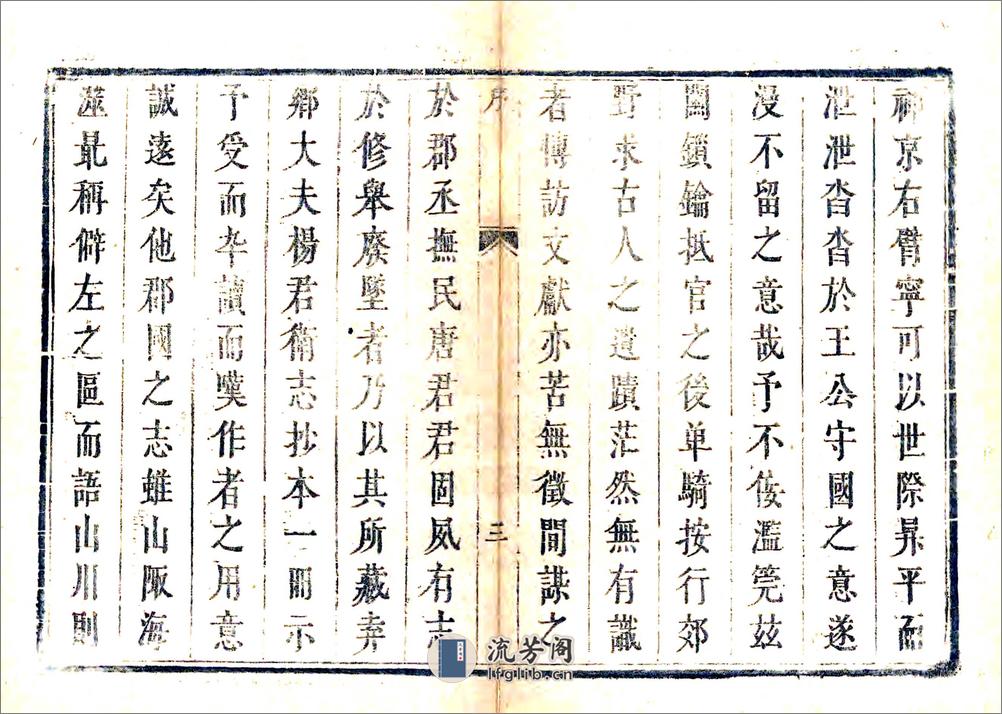 神京右臂寧可以世際昇平而
泄泄沓沓於王公守國之意遂
漫不留之意哉予不佞濫筦玆
閫鎖鑰抵官之後单騎按行郊
野求古人之遺蹟茫然無有識
者博訪文獻亦苦無徵間謀之
序
三
於郡丞撫民唐君君固夙有志
於修舉廢墜者乃以其所藏弆
鄉大夫楊君衛志抄本一冊示
予受而卒讀而嘆作者之用意
誠遠矣他郡國之志雖山陬海
澨最稱僻左之區而語山川則
流芳阁
lfglib.cn